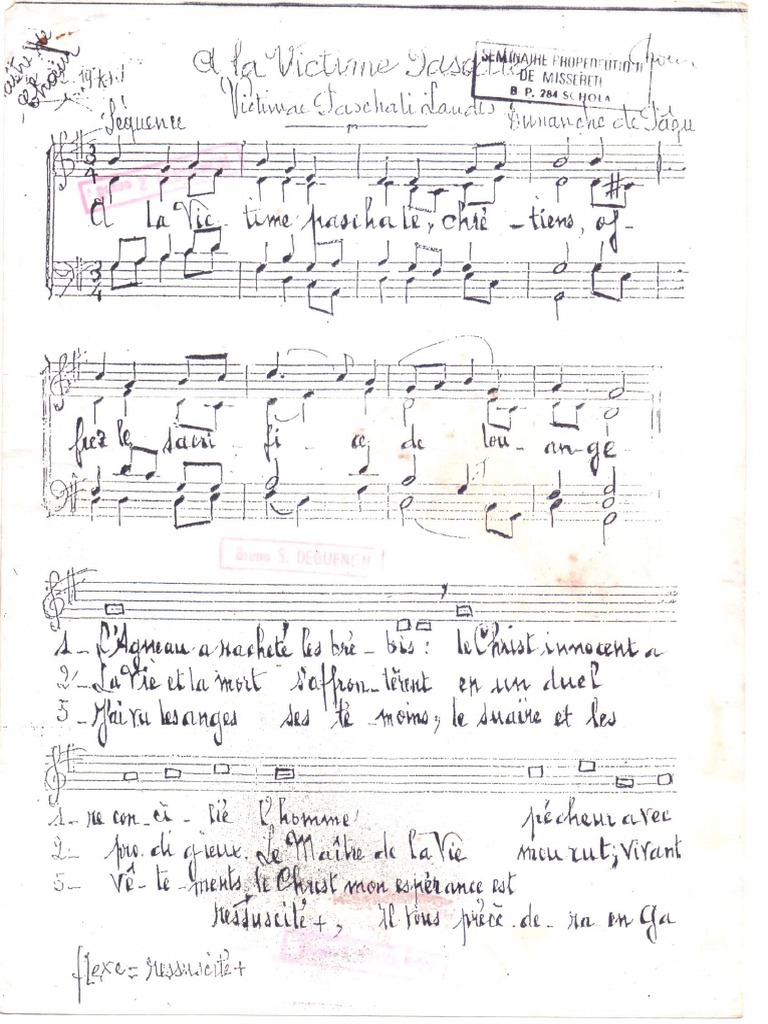 A la Victime Pascale
SEMINAIRE PROPEDEUTIQUE
DE MISSERETE
B.P. 284 SCHOLA
Victimae Paschali Laudes
pour
Séquence
Dimanche de Pâqu
3/4
A la Vic - time paschale, chré - tiens, of-
frez le sacri - fi - ce de lou- an-ge
Bruno S. DEGUENON
1- L'Agneau a racheté les bré - bis: le Christ innocent a
2- La Vie et la mort s'affron-tèrent en un duel
5- J'ai vu les anges ses té moins, le suaire et les
1- re con-ci - lié l'homme pécheur avec
2- pro.di gieux. Le Maître de la Vie mourut; vivant
5- vê-te-ments, le Christ mon espérance est
ressuscité +, Il vous précè-de-ra en Ga
flexe = ressuscité +